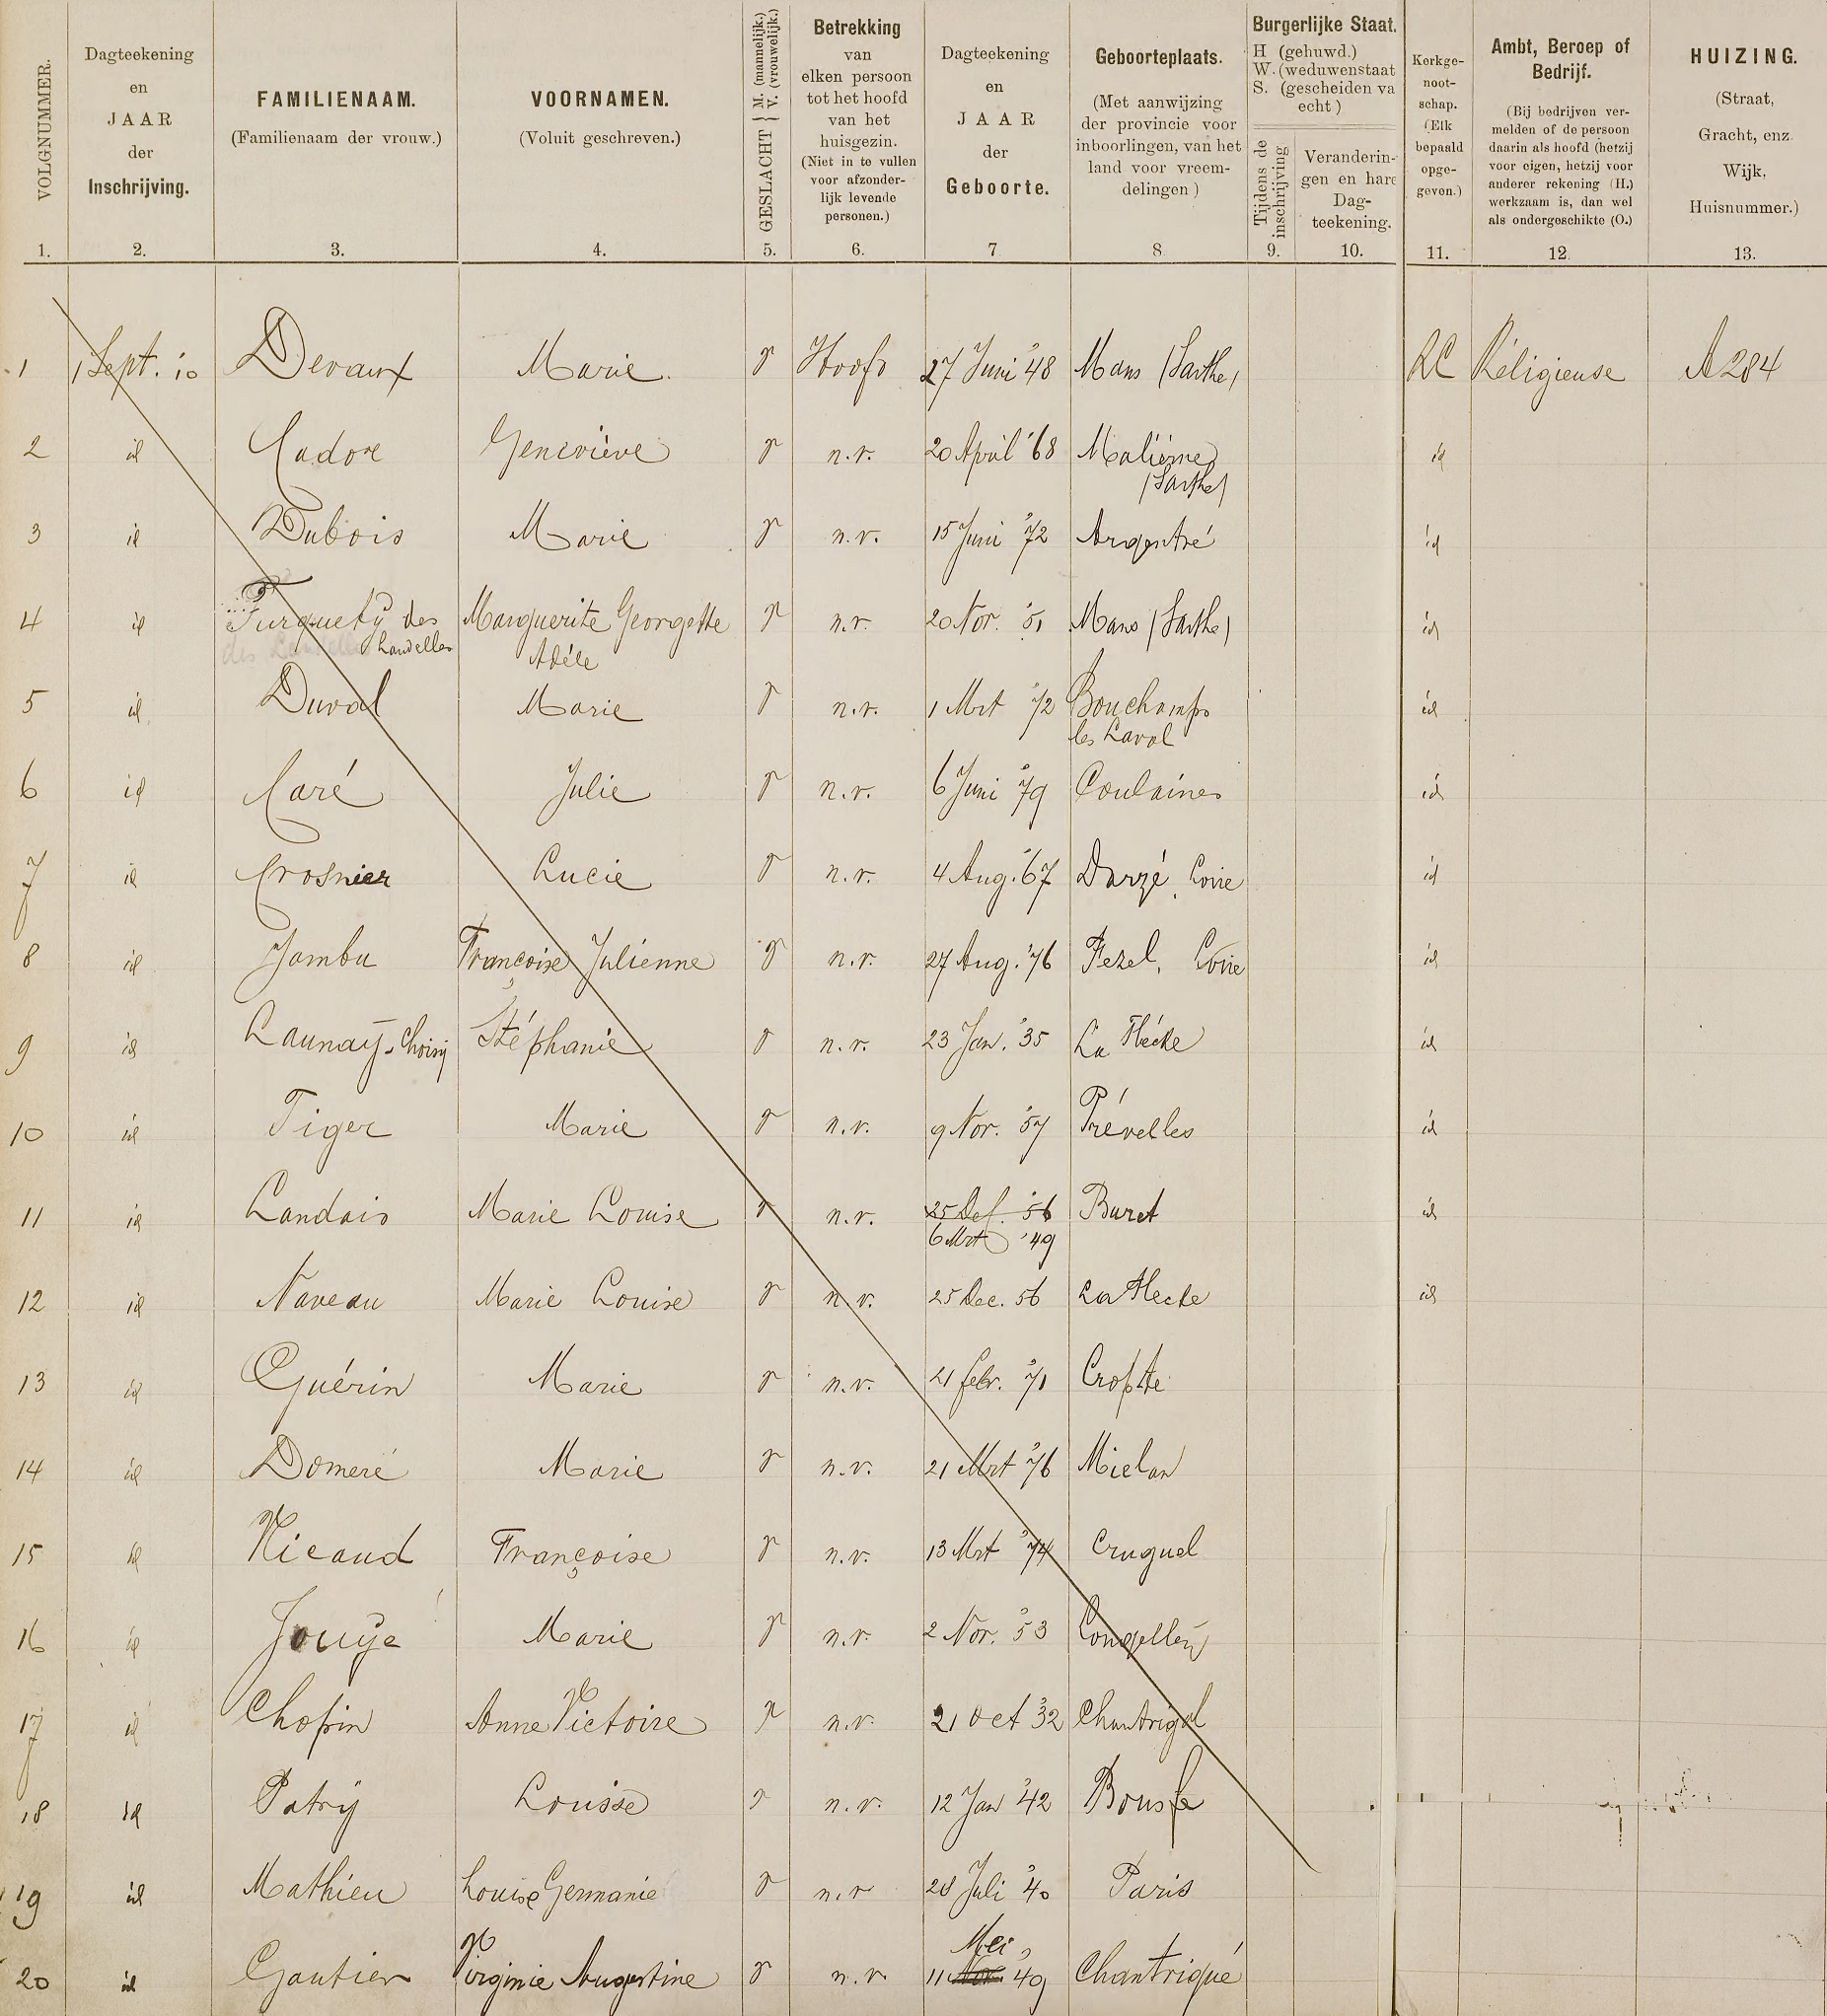 VOLGNUMMER.
Dagteekening
en
JAAR
der
Inschrijving.
FAMILIENAAM.
(Familienaam der vrouw.)
VOORNAMEN.
(Voluit geschreven.)
GESLACHT { M. (mannelijk.) V. (vrouwelijk.)
Betrekking
van
elken persoon
tot het hoofd
van het
huisgezin.
(Niet in te vullen
voor afzonder-
lijk levende
personen.)
Dagteekening
en
JAAR
der
Geboorte.
Geboorteplaats.
(Met aanwijzing
der provincie voor
inboorlingen, van het
land voor vreem-
delingen)
Burgerlijke Staat.
H (gehuwd.)
W. (weduwenstaat
S. (gescheiden va
echt)
Tijdens de
inschrijving
Veranderin-
gen en hare
Dag-
teekening.
Kerkge-
noot-
schap.
(Elk
bepaald
opge-
geven.)
Ambt, Beroep of
Bedrijf.
(Bij bedrijven ver-
melden of de persoon
daarin als hoofd (hetzij
voor eigen, hetzij voor
anderer rekening (H.)
werkzaam is, dan wel
als ondergeschikte (O.)
HUIZING.
(Straat,
Gracht, enz.
Wijk,
Huisnummer.)
1. 2. 3. 4. 5. 6. 7 8 9. 10. 11. 12 13.
1 1 Sept. 10 Devaux Marie V Hoofd 27 Juni '48 Mans (Sarthe) RC Réligieuse A 284
2 id Cadore Geneviève V n.v. 20 April '68 Maliėrne id
(Sarthe)
3 id Dubois Marie V n.v. 15 Juni '72 Argentré id
4 id Turquety des Marguerite Georgette V n.v. 20 Nov. '51 Mans (Sarthe) id
Landelles Adéle
5 id Duval Marie V n.v. 1 Mrt '72 Bouchamps id
les Laval
6 id Caré Julie V n.v. 6 Juni '79 Coulaines id
7 id Crosnier Lucie V n.v. 4 Aug. '67 Darzé, Loire id
8 id Jambu Françoise Julienne V n.v. 27 Aug. '76 Fezel, Loire id
9 id Launaÿ-Choisy Stéphanie V n.v. 23 Jan. '35 La Flécke id
10 id Tiger Marie V n.v. 9 Nov. '57 Prévelles id
11 id Landais Marie Louise V n.v. 25 Dec. '56 Buret id
6 Mrt '49
12 id Naveau Marie Louise V n.v. 25 Dec. 56 La Flecke id
13 id Guérin Marie V n.v. 21 febr. '71 Cropte
14 id Domeré Marie V n.v. 21 Mrt '76 Mielan
15 id Nicaud Françoise V n.v. 13 Mrt '74 Cruguel
16 id Jouÿe Marie V n.v. 2 Nov. '53
17 id Chopin Anne Victoire V n.v. 21 Oct '32 Chantrigal
18 id Patrÿ Louise V n.v. 12 Jan '42
19 id Mathieu Louise Germanie V n.v 28 Juli '40 Paris
Mei
20 id Gautier Virginie Augustine V n.v. 11 Nov. '49 Chantrigué